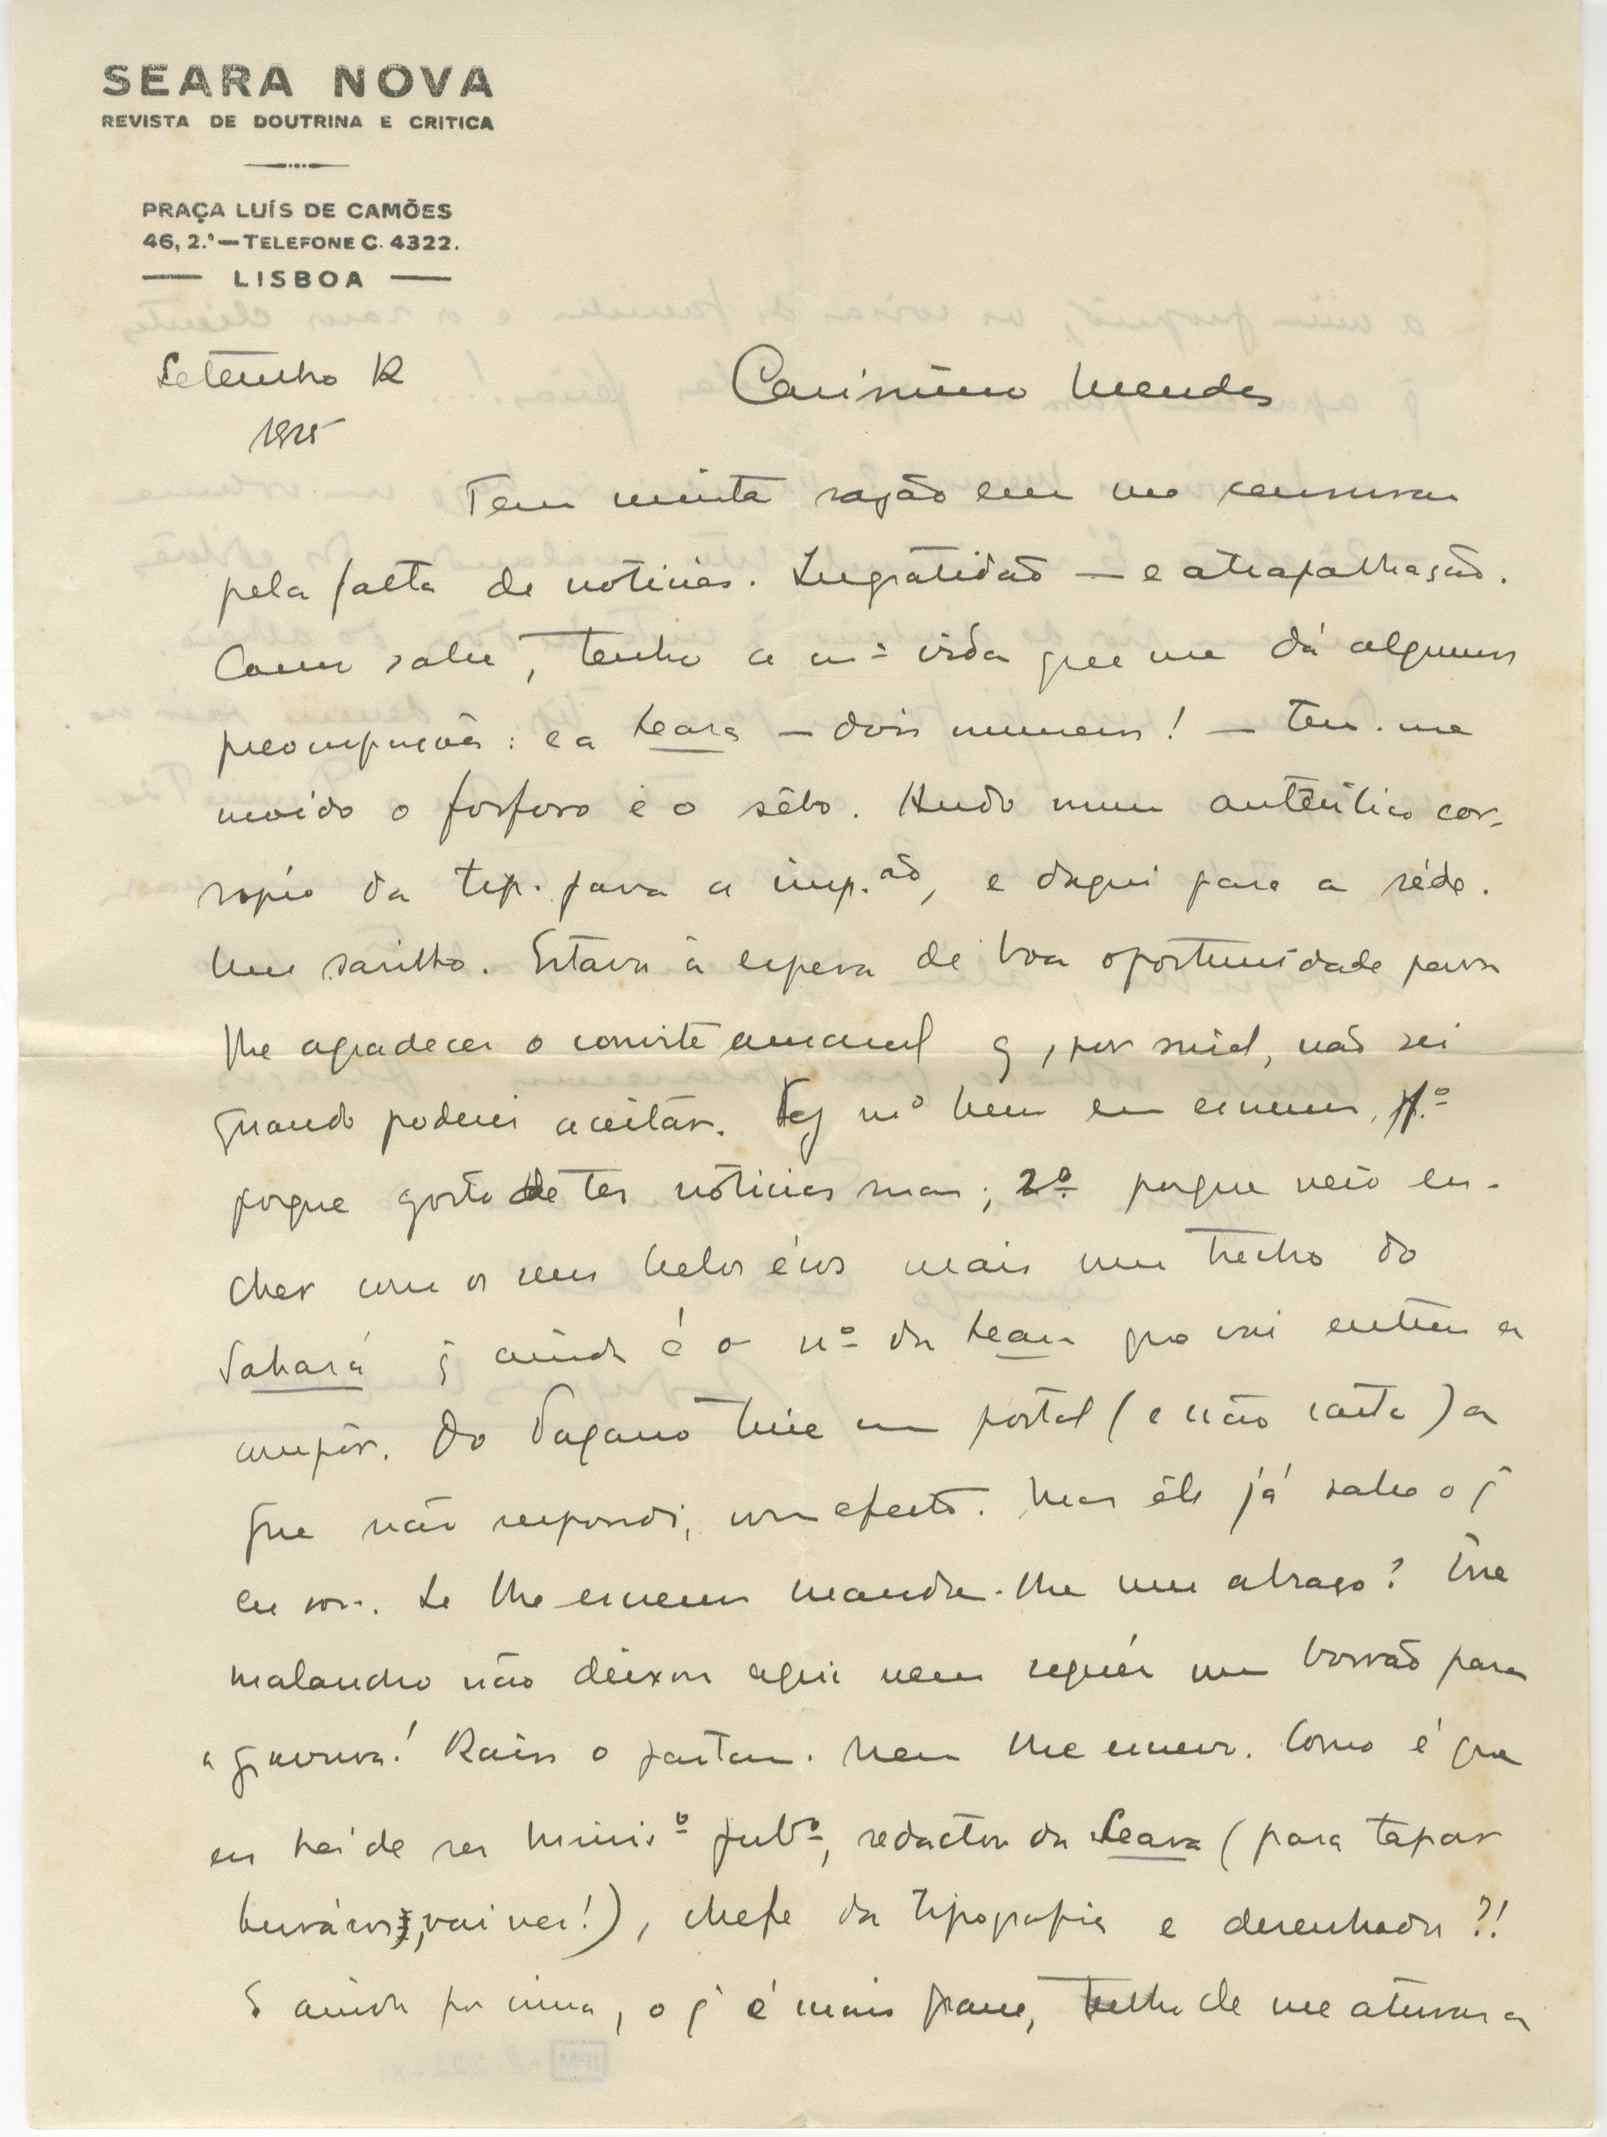 SEARA NOVA
REVISTA DE DOUTRINA E CRITICA
PRAÇA LUÍS DE CAMÕES
46, 2.º — TELEFONE C. 4322.
— LISBOA —
Setembro 12
1925
Carissimo Mendes
Tem muita razão em me censurar
pela falta de noticias. Ingratidão — e atrapalhação.
Como sabe, tenho a mª vida que me dá algumas
preocupações: e a Seara — dois numeros! — tem-me
moído o fosforo e o sêbo. Ando num autêntico cor-
ropio da tip. para a imp.ão, e daqui para a séde.
Um sarilho. Estava à espera de boa oportunidade para
lhe agradecer o convite amavel q, por , não sei
quando poderei aceitar. Fez mº bem em escrever, 1.º
porque gosto de ter noticias suas; 2º porque veio en-
cher com os seus belos écos mais um trecho do
Sahará q ainda é o nº da Seara que vai entrar a
compôr. Do Pagano tive um postal (e não carta) a
que não respondi, com efeito. Mas êle já sabe o q
eu sou. Se lhe escrever manda-lhe um abraço? Ésse
malandro não deixou aqui nem sequér um borrão para
a gravura! Raios o partam. Nem lhe escrevo. Como é que
eu hei de ser Minisº Pubº, redactor da Seara (para tapar
buracos, vai ver!), chefe da tipografia e desenhador?!
E ainda por cima, o q é mais grave, tenho de me aturar a